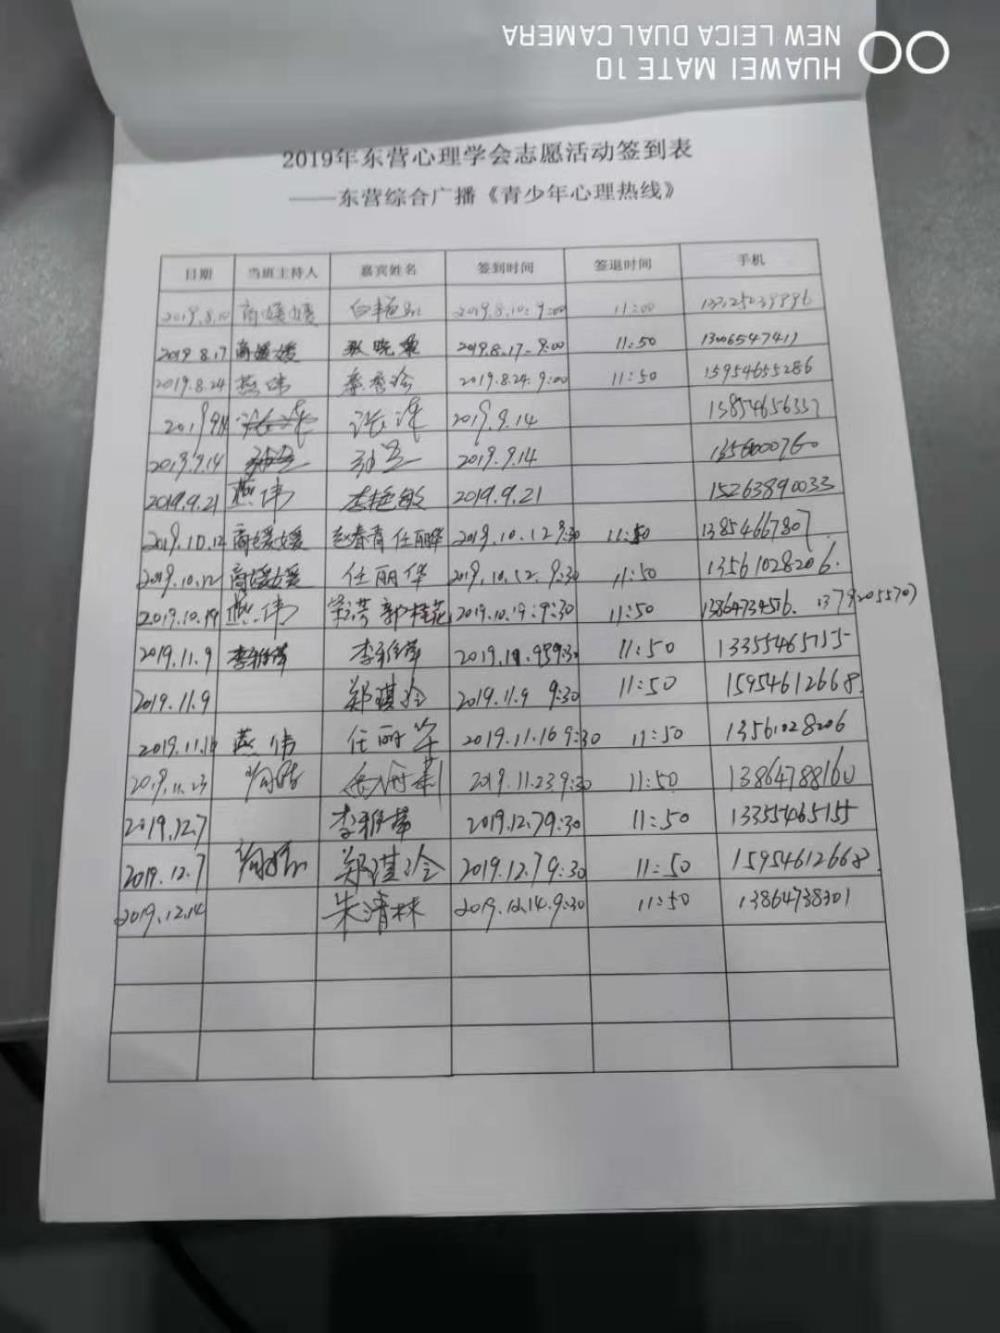 HUAWEI MATE 10
NEW LEICA DUAL CAMERA
2019年东营心理学会志愿活动签到表
——东营综合广播《青少年心理热线》
日期 当班主持人 嘉宾姓名 签到时间 签退时间 手机
2019.8.10 商媛媛 2019.8.10. 9:00 11:00
2019.8.17 商媛媛 2019.8.17. 9:00 11:50 13006547411
2019.8.24 燕伟 2019.8.24. 9:00 11:50 15954655286
2019.9.14
2019.9.14 2019.9.14
2019.9.21 燕伟 李艳敏 2019.9.21 15263890033
2019.10.12 商媛媛 赵春青 任丽华 2019.10.12 9:30 11:50 13854667807
2019.10.12 商媛媛 任丽华 2019.10.12. 9:30 11:50 13561028206.
2019.10.19 燕伟 郭桂花 2019.10.19:9:30 11:50 13864734576. 13792055707
2019.11.9 李雅萍 李雅萍 2019.11.9 9:30 11:50 13355465155
2019.11.9 郑琪玲 2019.11.9 9:30 11:50 15954612668
2019.11.16 燕伟 任丽华 2019.11.16 9:30 11:50 13561028206
2019.11.23 2019.11.23 9:30 11:50 13864788160
2019.12.7 李雅萍 2019.12.7 9:30 11:50 13355465155
2019.12.7 郑琪玲 2019.12.7 9:30 11:50 15954612668
2019.12.14 朱清林 2019.12.14.9:30 11:50 13864738301